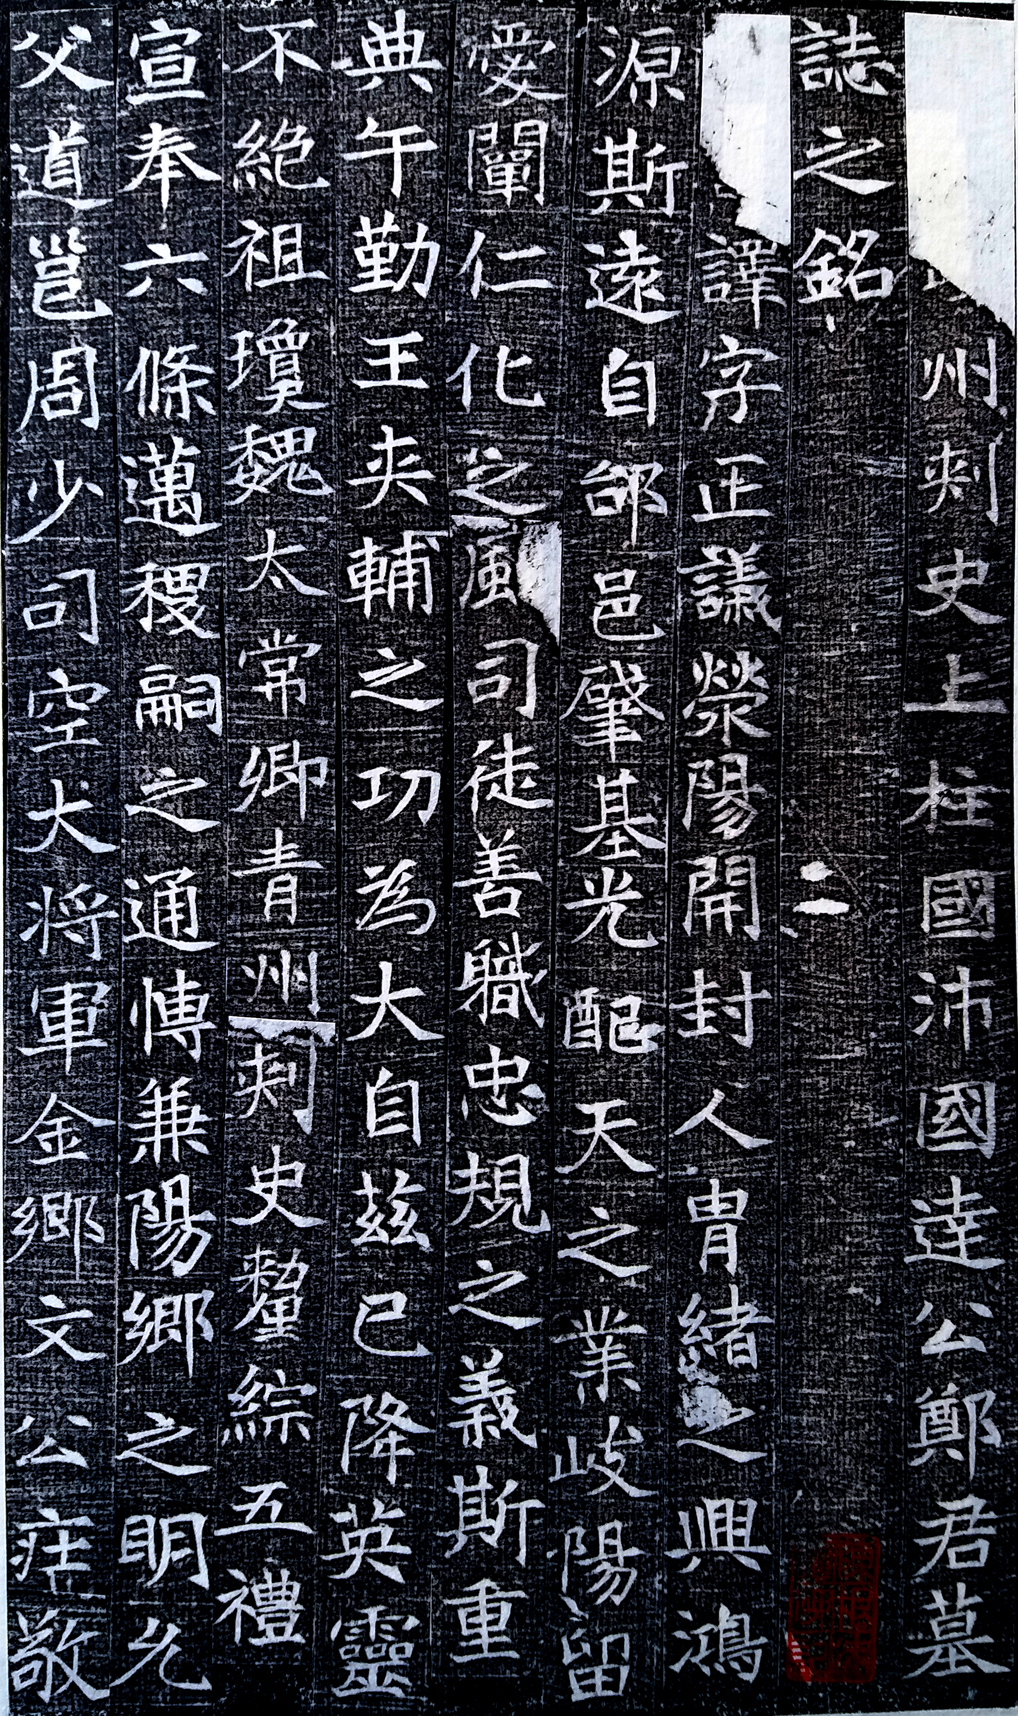 州刾史上柱國沛國達公鄭君墓
誌之銘
譯字正議滎陽開封人胄緒之興鴻
源斯遠自邰邑肇基光配天之業岐陽留
愛闡仁化之風司徒善職忠規之義斯重
典午勤王夾輔之功為大自茲已降英靈
不絕祖瓊魏太常卿青州刾史釐綜五禮
宣奉六條邁稷嗣之通博兼陽鄉之明允
父道邕周少司空大将軍金鄉文公莊敬